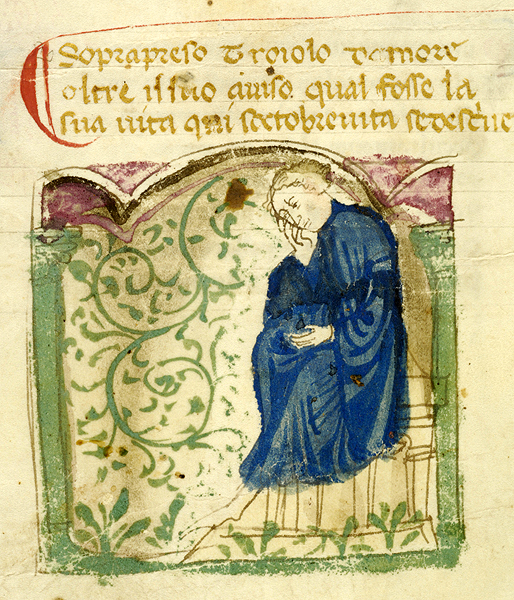 Soprapreso Troiolo damore
oltre il suo auiso qual fosse la
sua uita qui sectobreuita sedescriue